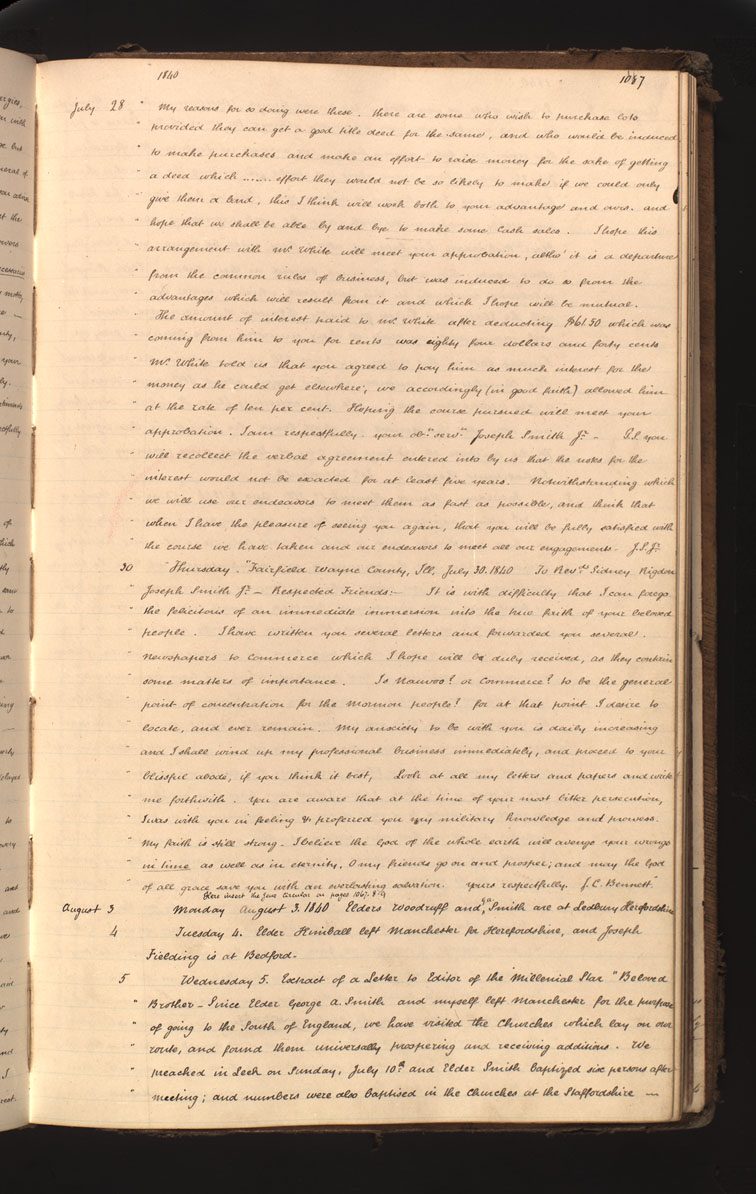 1840
1087
July 28 " My reasons for so doing were these. there are some who wish to purchase lots
" provided they can get a good title deed for the same, and who would be induced
" to make purchases and make an effort to raise money for the sake of getting
" a deed which ....... effort they would not be so likely to make if we could only
" give them a bond, this I think will work both to your advantage and ours. and
" hope that we shall be able by and bye to make some Cash sales. I hope this
" arrangement with Mr White will meet your approbation, altho' it is a departure
" from the common rules of business, but was induced to do so from the
" advantages which will result from it and which I hope will be mutual.
" The amount of interest paid to Mr White after deducting $61.50 which was
" coming from him to you for rents was eighty four dollars and forty cents
" Mr White told us that you agreed to pay him as much interest for the
" money as he could get elsewhere, we accordingly (in good faith) allowed him
" at the rate of ten per cent. Hoping the course pursued will meet your
" approbation. I am respectfully your obt servt Joseph Smith Jr — P.S. you
" will recollect the verbal agreement entered into by us that the notes for the
" interest would not be exacted for at least five years. Notwithstanding which
" we will use our endeavors to meet them as fast as possible, and think that
" when I have the pleasure of seeing you again, that you will be fully satisfied with
" the course we have taken and our endeavors to meet all our engagements. J.S. Jr
30 Thursday. "Fairfield Wayne County, Ill, July 30. 1840 To Revds Sidney Rigdon
" Joseph Smith Jr — Respected Friends:— It is with difficulty that I can forego
" the felicitous of an immediate immersion into the true faith of your beloved
" people. I have written you several letters and forwarded you several
" Newspapers to Commerce which I hope will be duly received, as they contain
" some matters of importance. Is Nauvoo? or Commerce? to be the general
" point of concentration for the Mormon people? for at that point I desire to
" locate, and ever remain. My anxiety to be with you is daily increasing
" and I shall wind up my professional business immediately, and proceed to your
" blissful abode, if you think it best, Look at all my letters and papers and write
" me forthwith. You are aware that at the time of your most bitter persecution,
" I was with you in feeling & proferred you my military knowledge and prowess.
" My faith is still strong. I believe the God of the whole earth will avenge your wrongs
" in time as well as in eternity, O my friends go on and prosper; and may the God
" of all grace save you with an everlasting salvation. Yours respectfully. J.C. Bennett"
Here insert the June circular on pages 1067. 8. 9
August 3 Monday August 3. 1840 Elders Woodruff and G.A. Smith are at Ledbury Herefordshire
4 Tuesday 4. Elder Kimball left Manchester for Herefordshire, and Joseph
Fielding is at Bedford.
5 Wednesday 5. Extract of a Letter to Editor of the Millenial Star "Beloved
" Brother — Since Elder George A. Smith and myself left Manchester for the purpose
" of going to the South of England, we have visited the Churches which lay on our
" route, and found them universally prospering and receiving additions. We
" preached in Leek on Sunday, July 10th and Elder Smith Baptized six persons after
" meeting; and numbers were also baptised in the Churches at the Staffordshire —